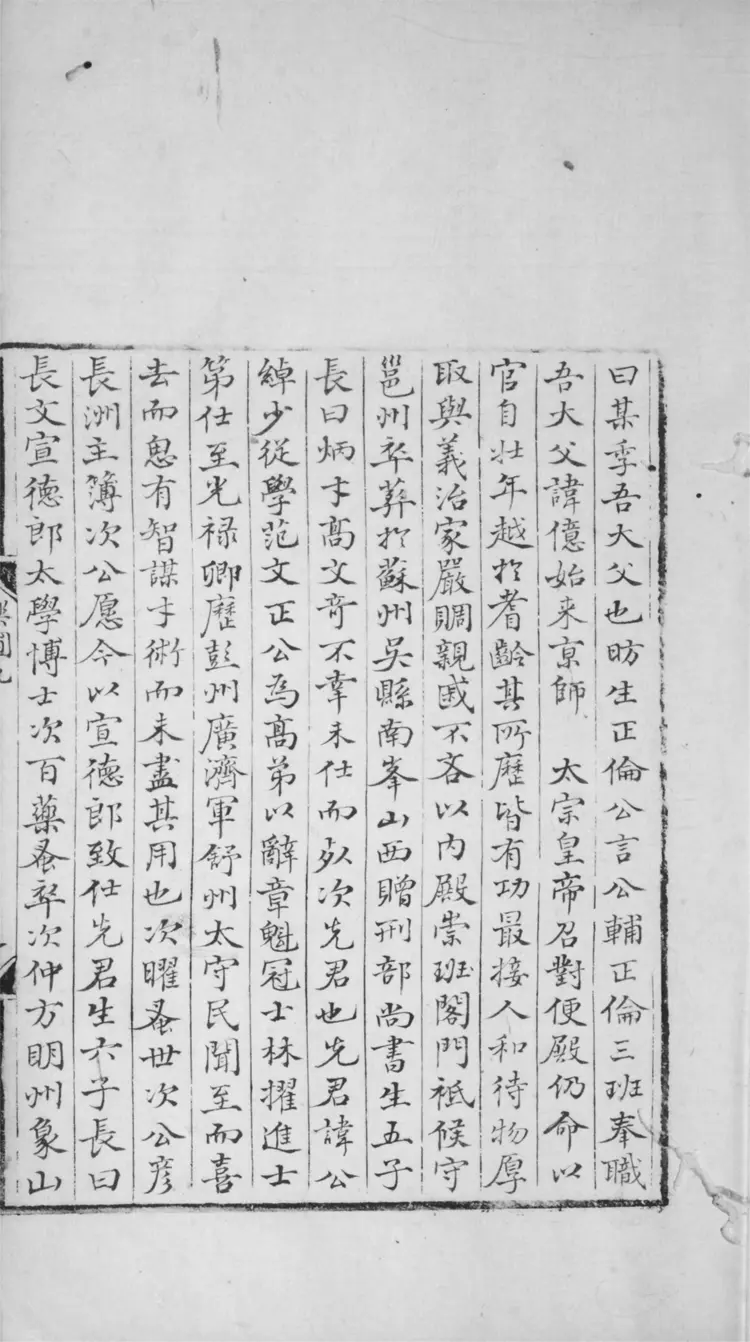 曰某季吾大父也昉生正倫公言公輔正倫三班奉職
吾大父諱億始来亰師　太宗皇帝召對便殿仍命以
官自壮年越扵耆齡其所歷皆有功最接人和待物厚
取與義治家嚴賙親戚不吝以内殿崇班閤門祗候守
邕州卒葬扵蘇州吴縣南峯山西贈刑部尚書生五子
長曰炳才髙文竒不幸未仕而殀次先君也先君諱公
綽少從學范文正公為髙弟以辭章魁冠士林擢進士
第仕至光禄卿歷彭州廣濟軍舒州太守民聞至而喜
去而思有智謀才術而未盡其用也次曜蚤世次公彦
長洲主簿次公愿今以宣德郎致仕先君生六子長曰
長文宣德郎太學博士次百藥蚤卒次仲方明州象山